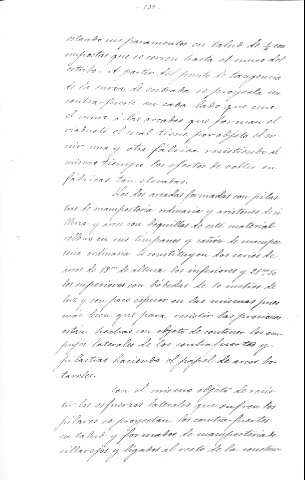 - 139 -
estando sus paramentos en talud de 1/5 con
impostas que se corren hasta el muro del
estribo. A partir del punto de tangencia
de la curva de entrada se proyecta un
contra-fuerte en cada lado que une
el muro á las arcadas que forman el
viaducto el cual tiene por objeto el u-
nir una y otra fábrica resistiendo al
mismo tiempo los efectos de
fábricas tan elevadas.
Las dos arcadas formadas con pilas-
tras de mampostería ordinaria y aristones de si-
llería y arcos con boquillas de este material
relleno en sus tímpanos y cañón de mampos-
tería ordinaria lo constituyen dos series de
arcos de 18 m de altura los inferiores y
los superiores con bóvedas de 10 metros de
luz y con poco espesor en las mismas pues
más bien que para resistir las presiones
están hechas con objeto de contener los em-
pujes laterales de los contrafuertes y
pilastras haciendo el papel de arcos bo-
tareles.
Con el mismo objeto de resis-
tir los esfuerzos laterales que sufren los
pilares se proyectan los contra-fuertes
en talud y formados de mampostería de
sillarejos y ligados al resto de la construc-